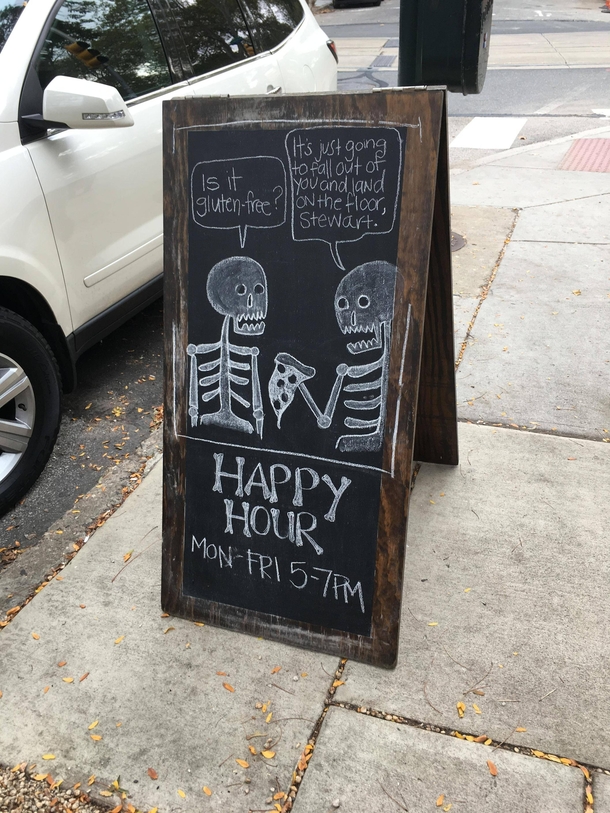 Is it
gluten-free?
It's just going
to fall out of
you and land
on the floor,
Stewart.
HAPPY
HOUR
MON-FRI 5-7PM